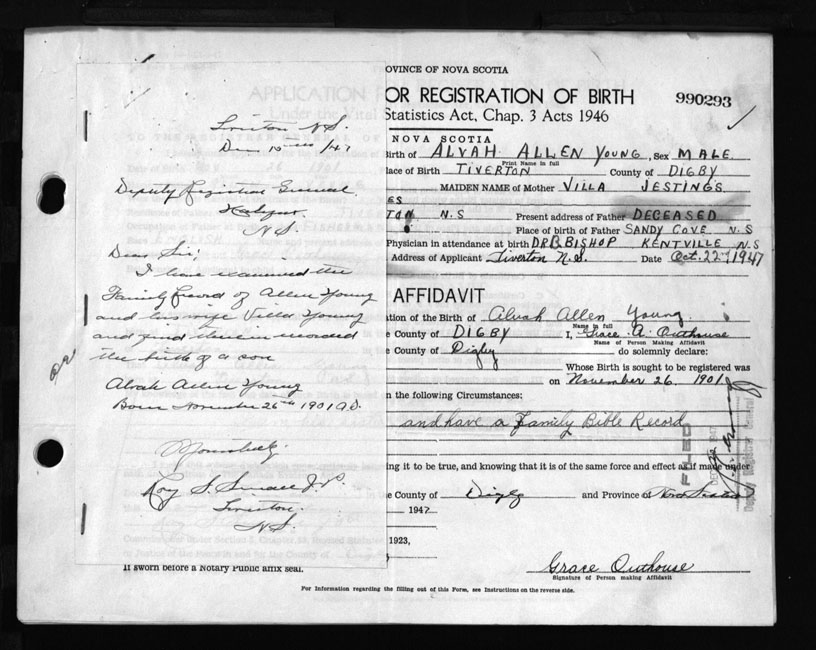 Tiverton N.S.
Dec 10th /47
Deputy Registrar General
Halifax
N.S.
Dear Sir;
I have examined the
Family Record of Allen Young
and his wife Villa Young
and find therein recorded
the birth of a son
Alvah Allen Young
Born November 26th 1901 A.D.
Roy S. Small J.P.
Tiverton
N.S.
OVINCE OF NOVA SCOTIA
OR REGISTRATION OF BIRTH
990293
Statistics Act, Chap. 3 Acts 1946
NOVA SCOTIA
Birth of ALVAH ALLEN YOUNG, Sex MALE
Print Name in full
lace of Birth TIVERTON County of DIGBY
MAIDEN NAME of Mother VILLA JESTINGS
ES
TON N.S Present address of Father DECEASED
Place of birth of Father SANDY COVE N.S
Physician in attendance at birth DR B BISHOP KENTVILLE N.S
Address of Applicant Tiverton N.S. Date Oct. 22nd 1947
AFFIDAVIT
tion of the Birth of Alvah Allen Young
Name in full
e County of DIGBY I, Grace A. Outhouse
Name of Person Making Affidavit
e County of Digby do solemnly declare:
Whose Birth is sought to be registered was
on November 26. 1901
n the following Circumstances:
and have a Family Bible Record
FILED
Deputy Registrar General
ing it to be true, and knowing that it is of the same force and effect as if made under
e County of Digby and Province of Nova Scotia
1947
1923,
If sworn before a Notary Public affix seal.
Grace Outhouse
Signature of Person making Affidavit
For Information regarding the filling out of this Form, see Instructions on the reverse side.